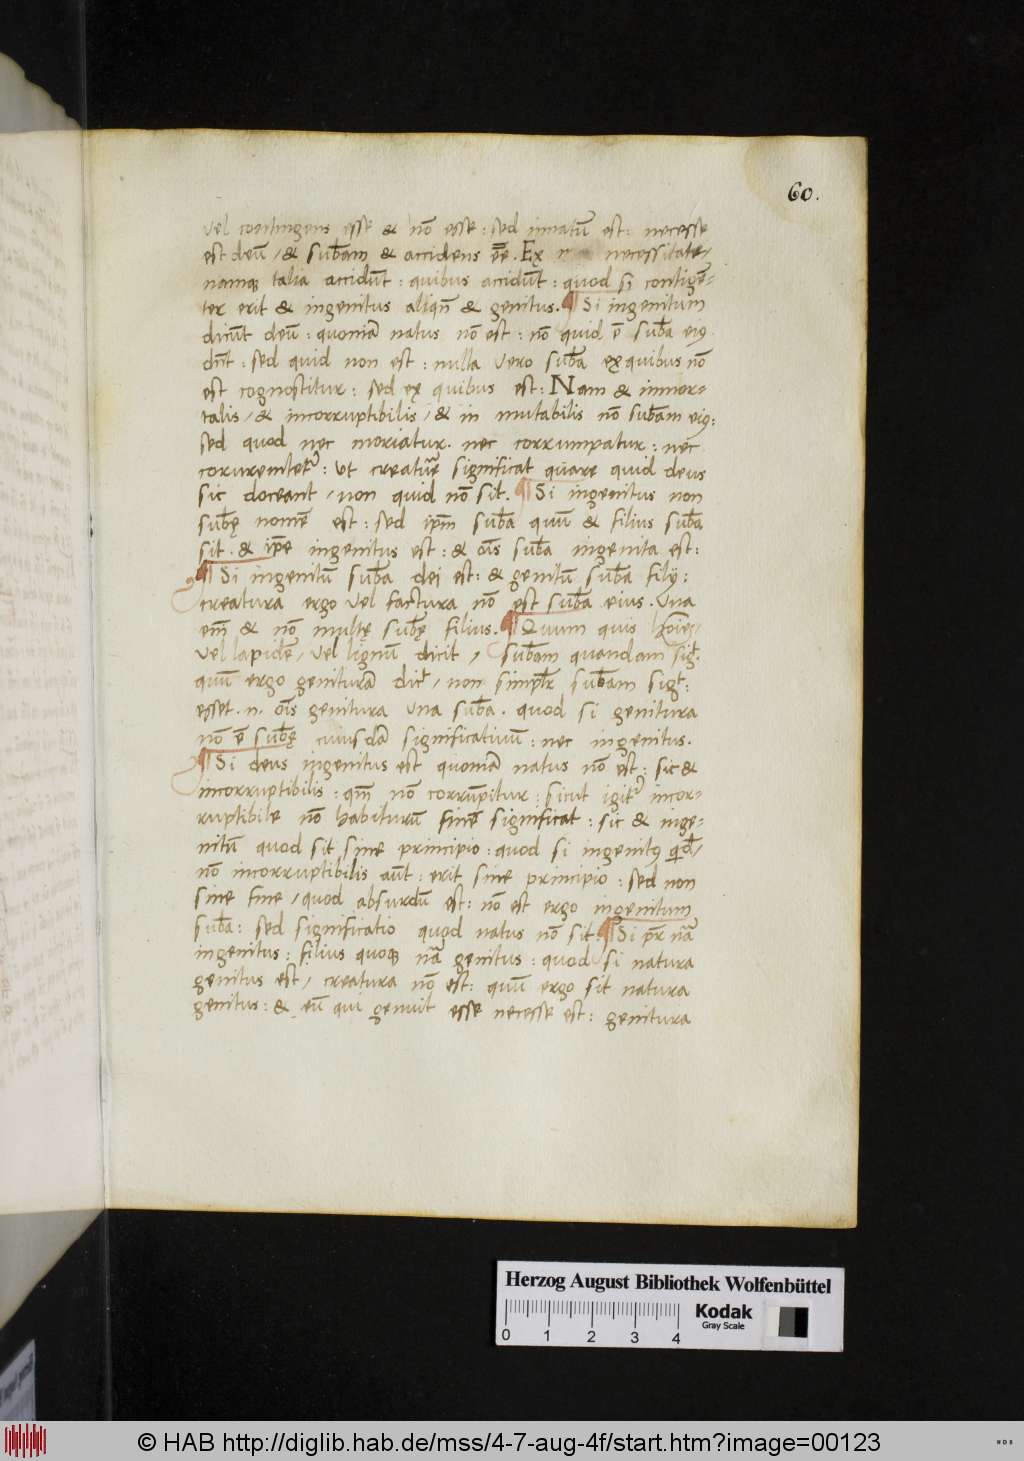 60.
vel contingens esse & nō esse: sed innatū est: necesse
est deū / & sub̄am & accidens ēē. Ex necessitate/
namq talia accidūt: quibus accidūt: quod si contigē-
ter erit & ingenitus aliqn̄ & genitus. ¶ Si ingenitum
dicūt deū: quoniā natus nō est: nō quid ē sub̄a eiꝰ
dn̄t: sed quid non est: nulla vero sub̄a ex quibus nō
est cognoscitur: sed ex quibus est: Nam & immor-
talis / & incorruptibilis / & in mutabilis nō sub̄am eiꝰ:
sed quod nec moriatur. nec corrumpatur: nec
: ut creatūrę significat quare quid deus
sic doceant / non quid nō sit. ¶ Si ingenitus non
sub̄ę nomē est: sed ip̄m sub̄a quū & filius sub̄a
sit. & ip̄e ingenitus est: & oīs sub̄a ingenita est:
¶ Si ingenitū sub̄a dei est: & genitū sub̄a filij:
creatura ergo vel factura nō est sub̄a eius. Una
em̄ & nō multę sub̄ę filius. ¶ Quum quis hoīes/
vel lapidē / vel lignū dicit / sub̄am quandam sigt̄.
quū ergo genituram dict̄ / non simplr̄ sub̄am sigt̄:
esset .n. oīs genitura una sub̄a. quod si genitura
nō ē sub̄ę cuiusdā significativū: nec ingenitus.
¶ Si deus ingenitus est quoniā natus nō est: sic &
incorruptibilis: qm̄ nō corrūpitur: sicut igit᷑ incor-
ruptibile nō habiturū finē significat: sic & inge-
nitū quod sit sine principio: quod si ingenitꝰ qd̄/
nō incorruptibilis aūt: erit sine principio: sed non
sine fine / quod absurdū est: nō est ergo ingenitum
sub̄a: sed significatio quod natus nō sit. ¶ Si pr̄ nā
ingenitus: filius quoq nā genitus: quod si natura
genitus est / creatura nō est: quū ergo sit natura
genitus: & eū qui genuit esse necesse est: genitura
Herzog August Bibliothek Wolfenbüttel
0 1 2 3 4
Kodak
Gray Scale
© HAB http://diglib.hab.de/mss/4-7-aug-4f/start.htm?image=00123